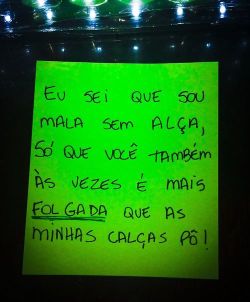 EU SEI QUE SOU
MALA SEM ALÇA,
SÓ QUE VOCÊ TAMBÉM
ÀS VEZES É MAIS
FOLGADA QUE AS
MINHAS CALÇAS PÔ!